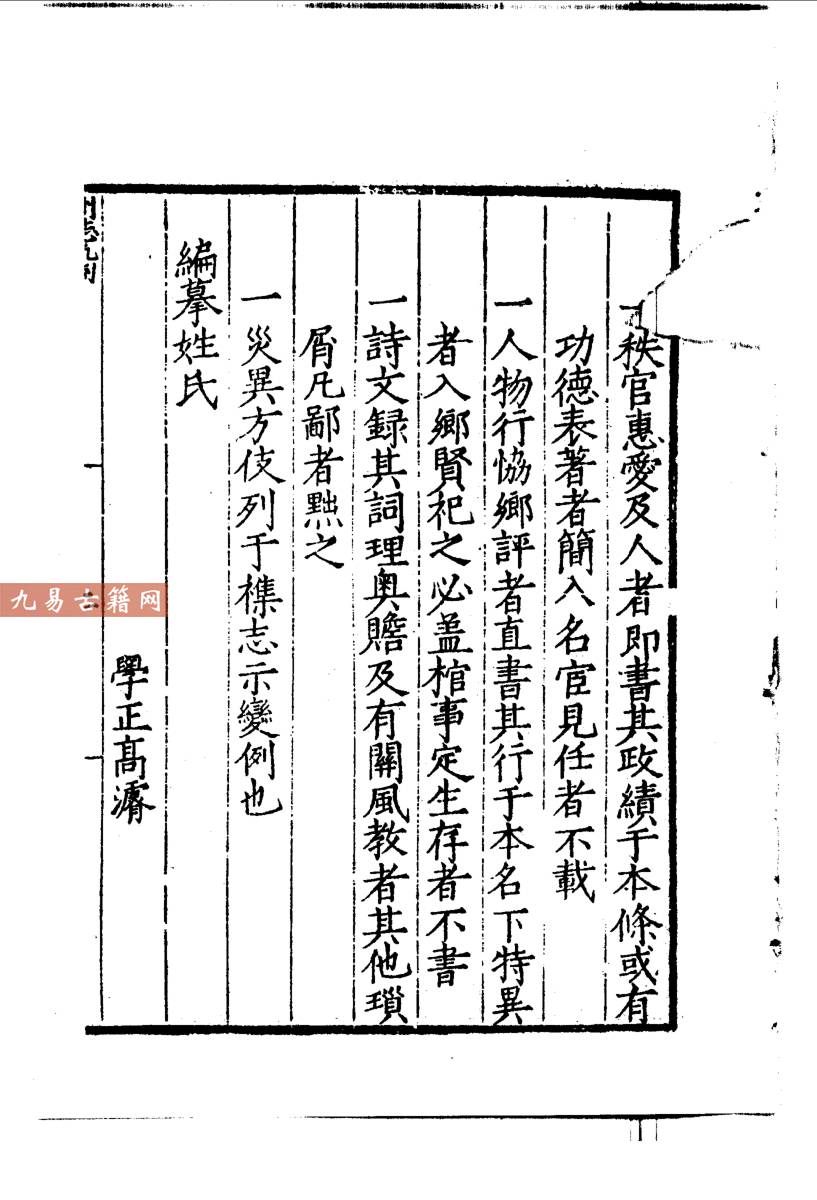 一秩官惠愛及人者即書其政績于本條或有
功德表著者簡入名宦見任者不載
一人物行恊鄉評者直書其行于本名下特異
者入鄉賢祀之必盖棺事定生存者不書
一詩文録其詞理奥贍及有關風教者其他瑣
屑凡鄙者黜之
一災異方伎列于襍志示變例也
編摹姓氏
學正高濬
州志凡例
九易古籍网